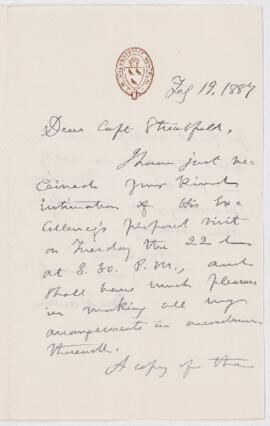 McGILL UNIVERSITY MONTREAL
Feb 19, 1887
Dear Capt Streatfeild,
I have just re
ceived your kind
intimation of His Exc
ellency's proposed visit
on Tuesday the 22d
at 8.30. P.M., and
shall have much pleasure
in making all my
arrangements in accordance
therewith.
A copy of the